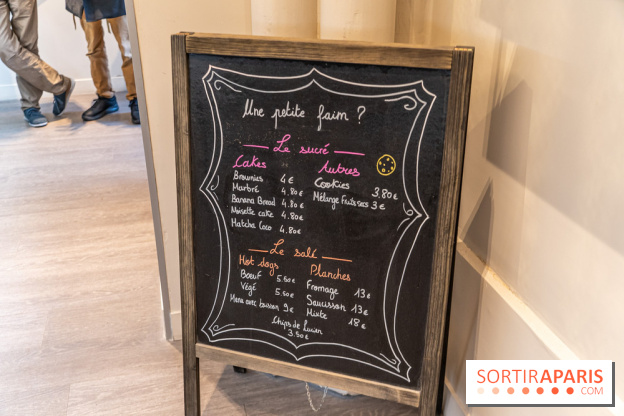 Une petite faim ?
Le sucré
Cakes
Brownies 4 €
Marbré 4.80 €
Banana Bread 4.80 €
Noisette cake 4.80 €
Matcha Coco 4.80 €
Autres
Cookies 3.80 €
Mélange Fruits secs 3 €
Le salé
Hot dogs
Boeuf 5.50 €
Végé 5.50 €
Menu avec boisson 9 €
Planches
Fromage 13 €
Saucisson 13 €
Mixte 18 €
Chips de Lucien
3.50 €
SORTIRAPARIS
.COM